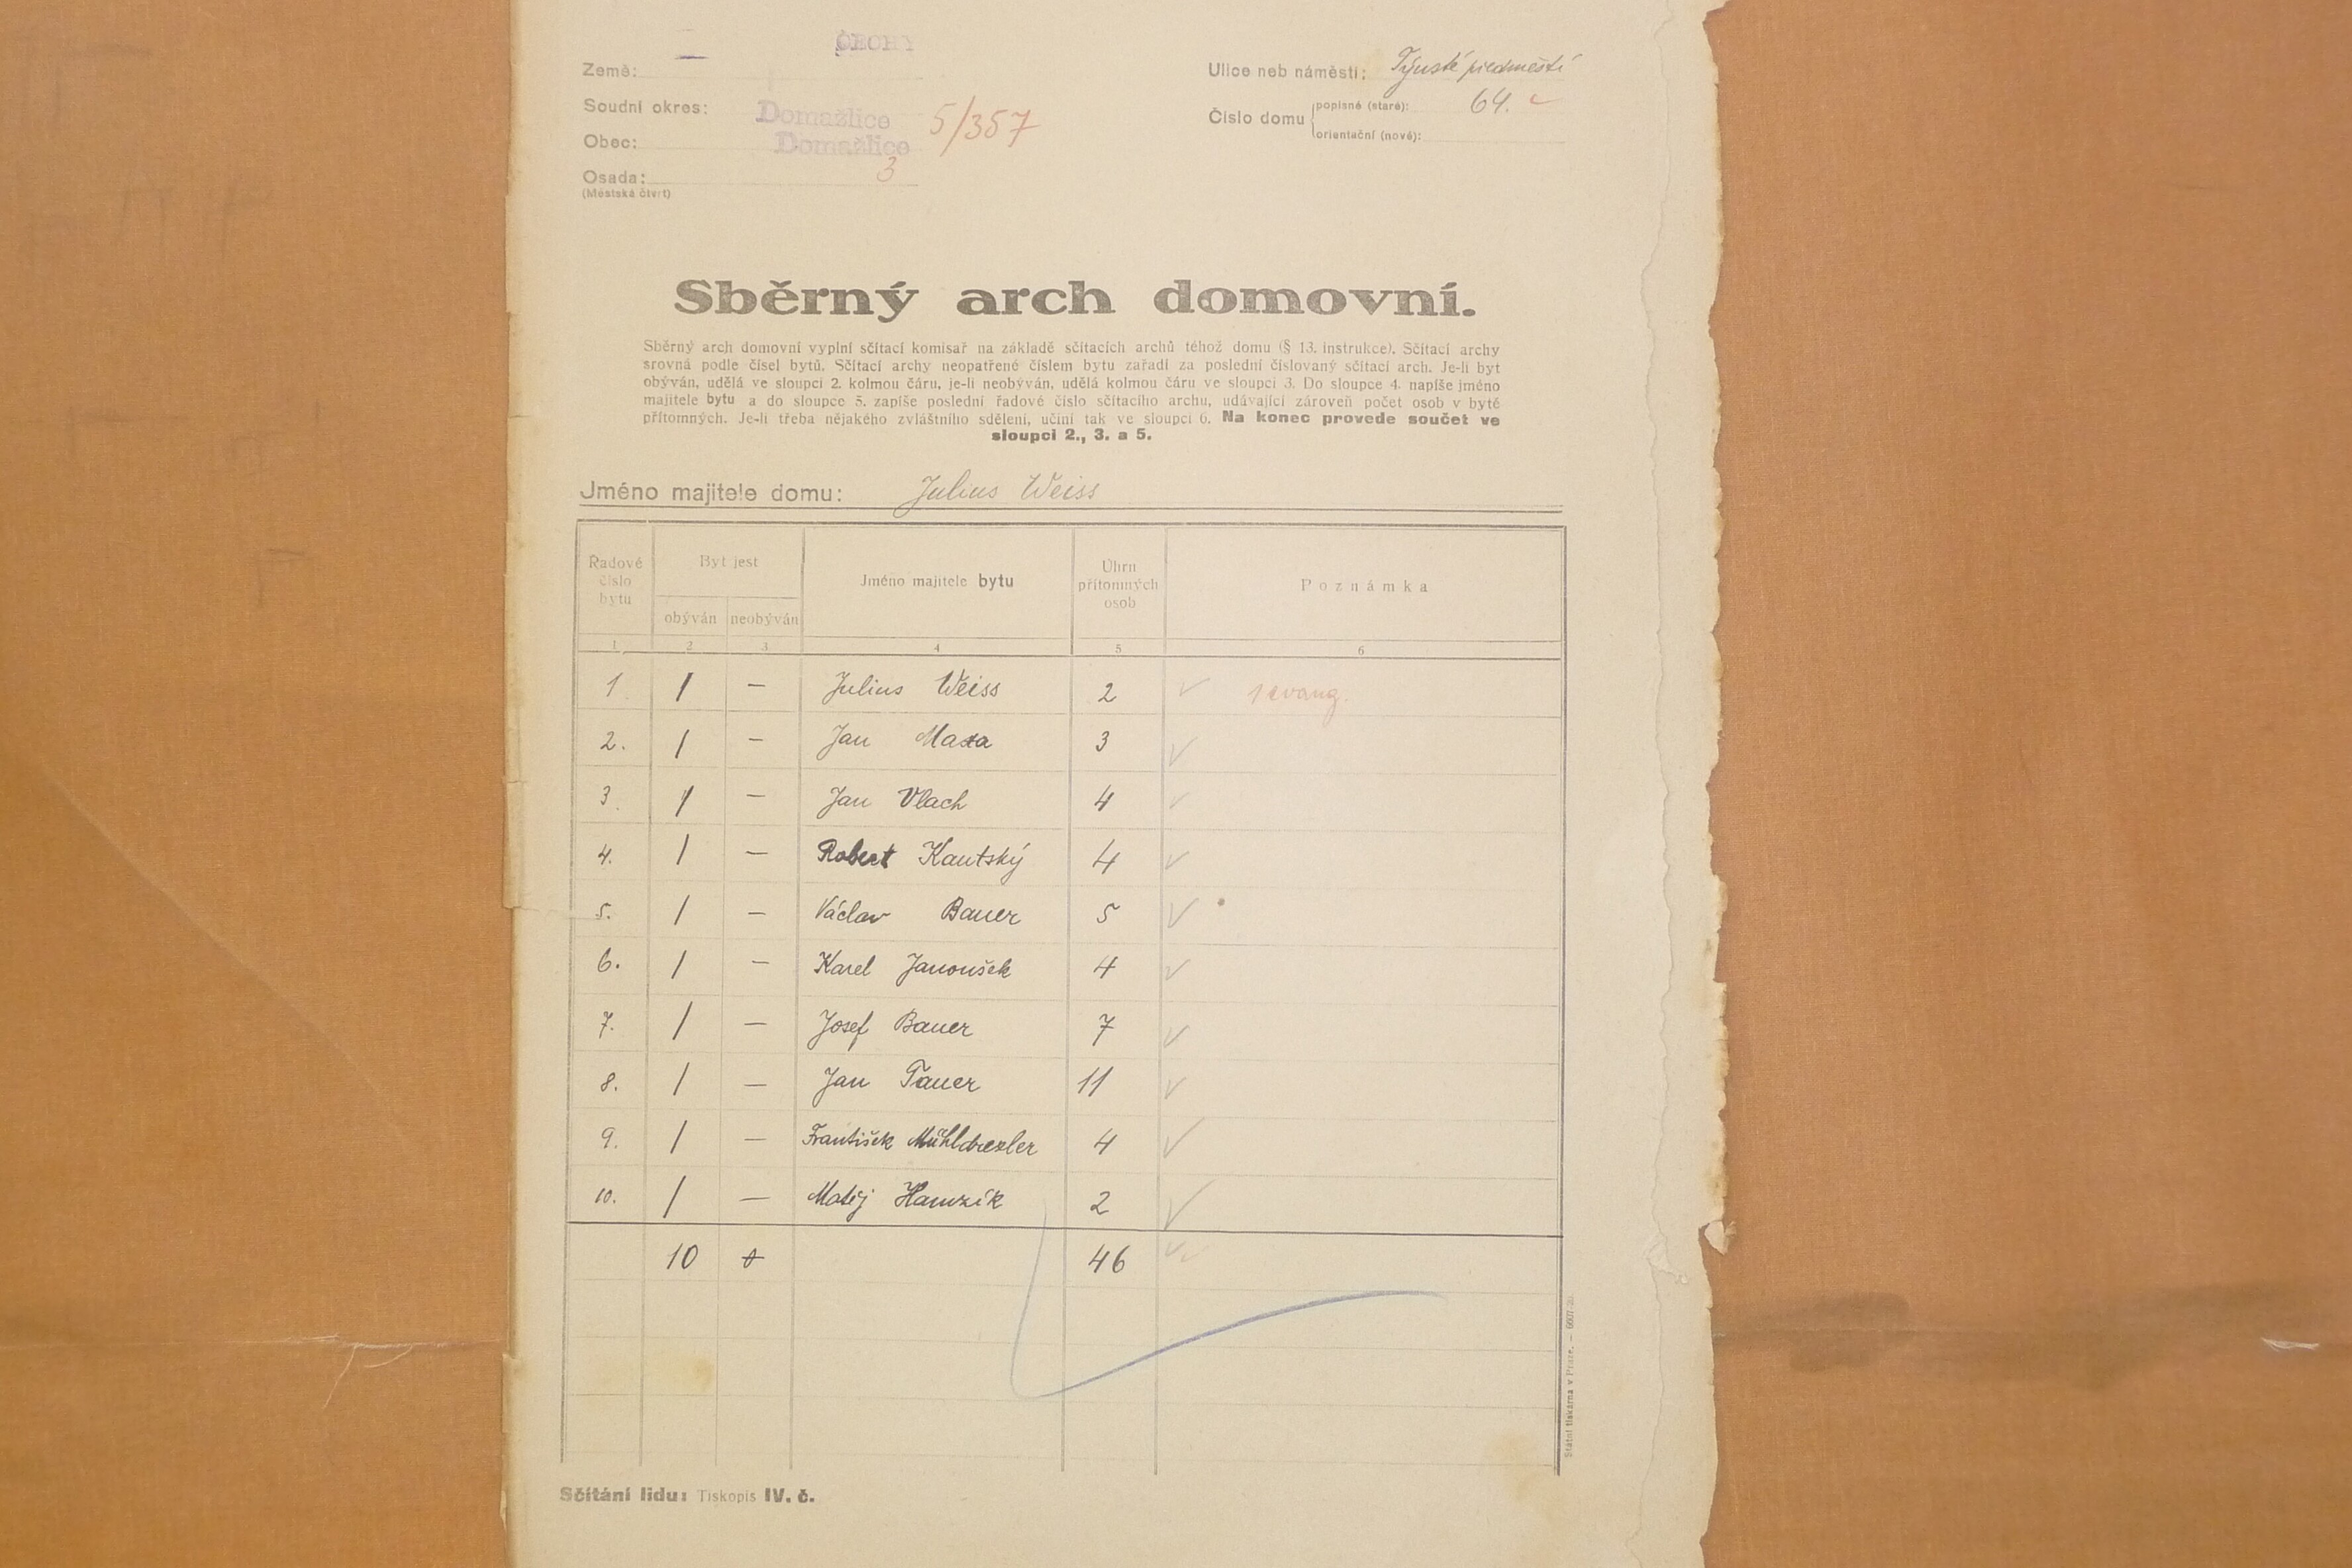 ČECHY
Země:
Soudní okres: Domažlice 5/357
Obec: Domažlice
Osada: 3
(Městská čtvrt)
Ulice neb náměstí: Týnské předměstí
Číslo domu popisné (staré): 64.
orientační (nové):
Sběrný arch domovní.
Sběrný arch domovní vyplní sčítací komisař na základě sčítacích archů téhož domu (§ 13. instrukce). Sčítací archy
srovná podle čísel bytů. Sčítací archy neopatřené číslem bytu zařadí za poslední číslovaný sčítací arch. Je-li byt
obýván, udělá ve sloupci 2. kolmou čáru, je-li neobýván, udělá kolmou čáru ve sloupci 3. Do sloupce 4. napíše jméno
majitele bytu a do sloupce 5. zapíše poslední řadové číslo sčítacího archu, udávající zároveň počet osob v bytě
přítomných. Je-li třeba nějakého zvláštního sdělení, učiní tak ve sloupci 6. Na konec provede součet ve
sloupci 2., 3. a 5.
Jméno majitele domu: Julius Weiss
Řadové číslo bytu
Byt jest
obýván neobýván
Jméno majitele bytu
Úhrn přítomných osob
Poznámka
1 2 3 4 5 6
1. / — Julius Weiss 2 1 evang.
2. / — Jan Maxa 3
3. / — Jan Vlach 4
4. / — Robert Kautský 4
5. / — Václav Bauer 5
6. / — Karel Janoušek 4
7. / — Josef Bauer 7
8. / — Jan Tauer 11
9. / — František Mühldrexler 4
10. / — Matěj Hamzík 2
10 46
Sčítání lidu: Tiskopis IV. č.
Státní tiskárna v Praze. —